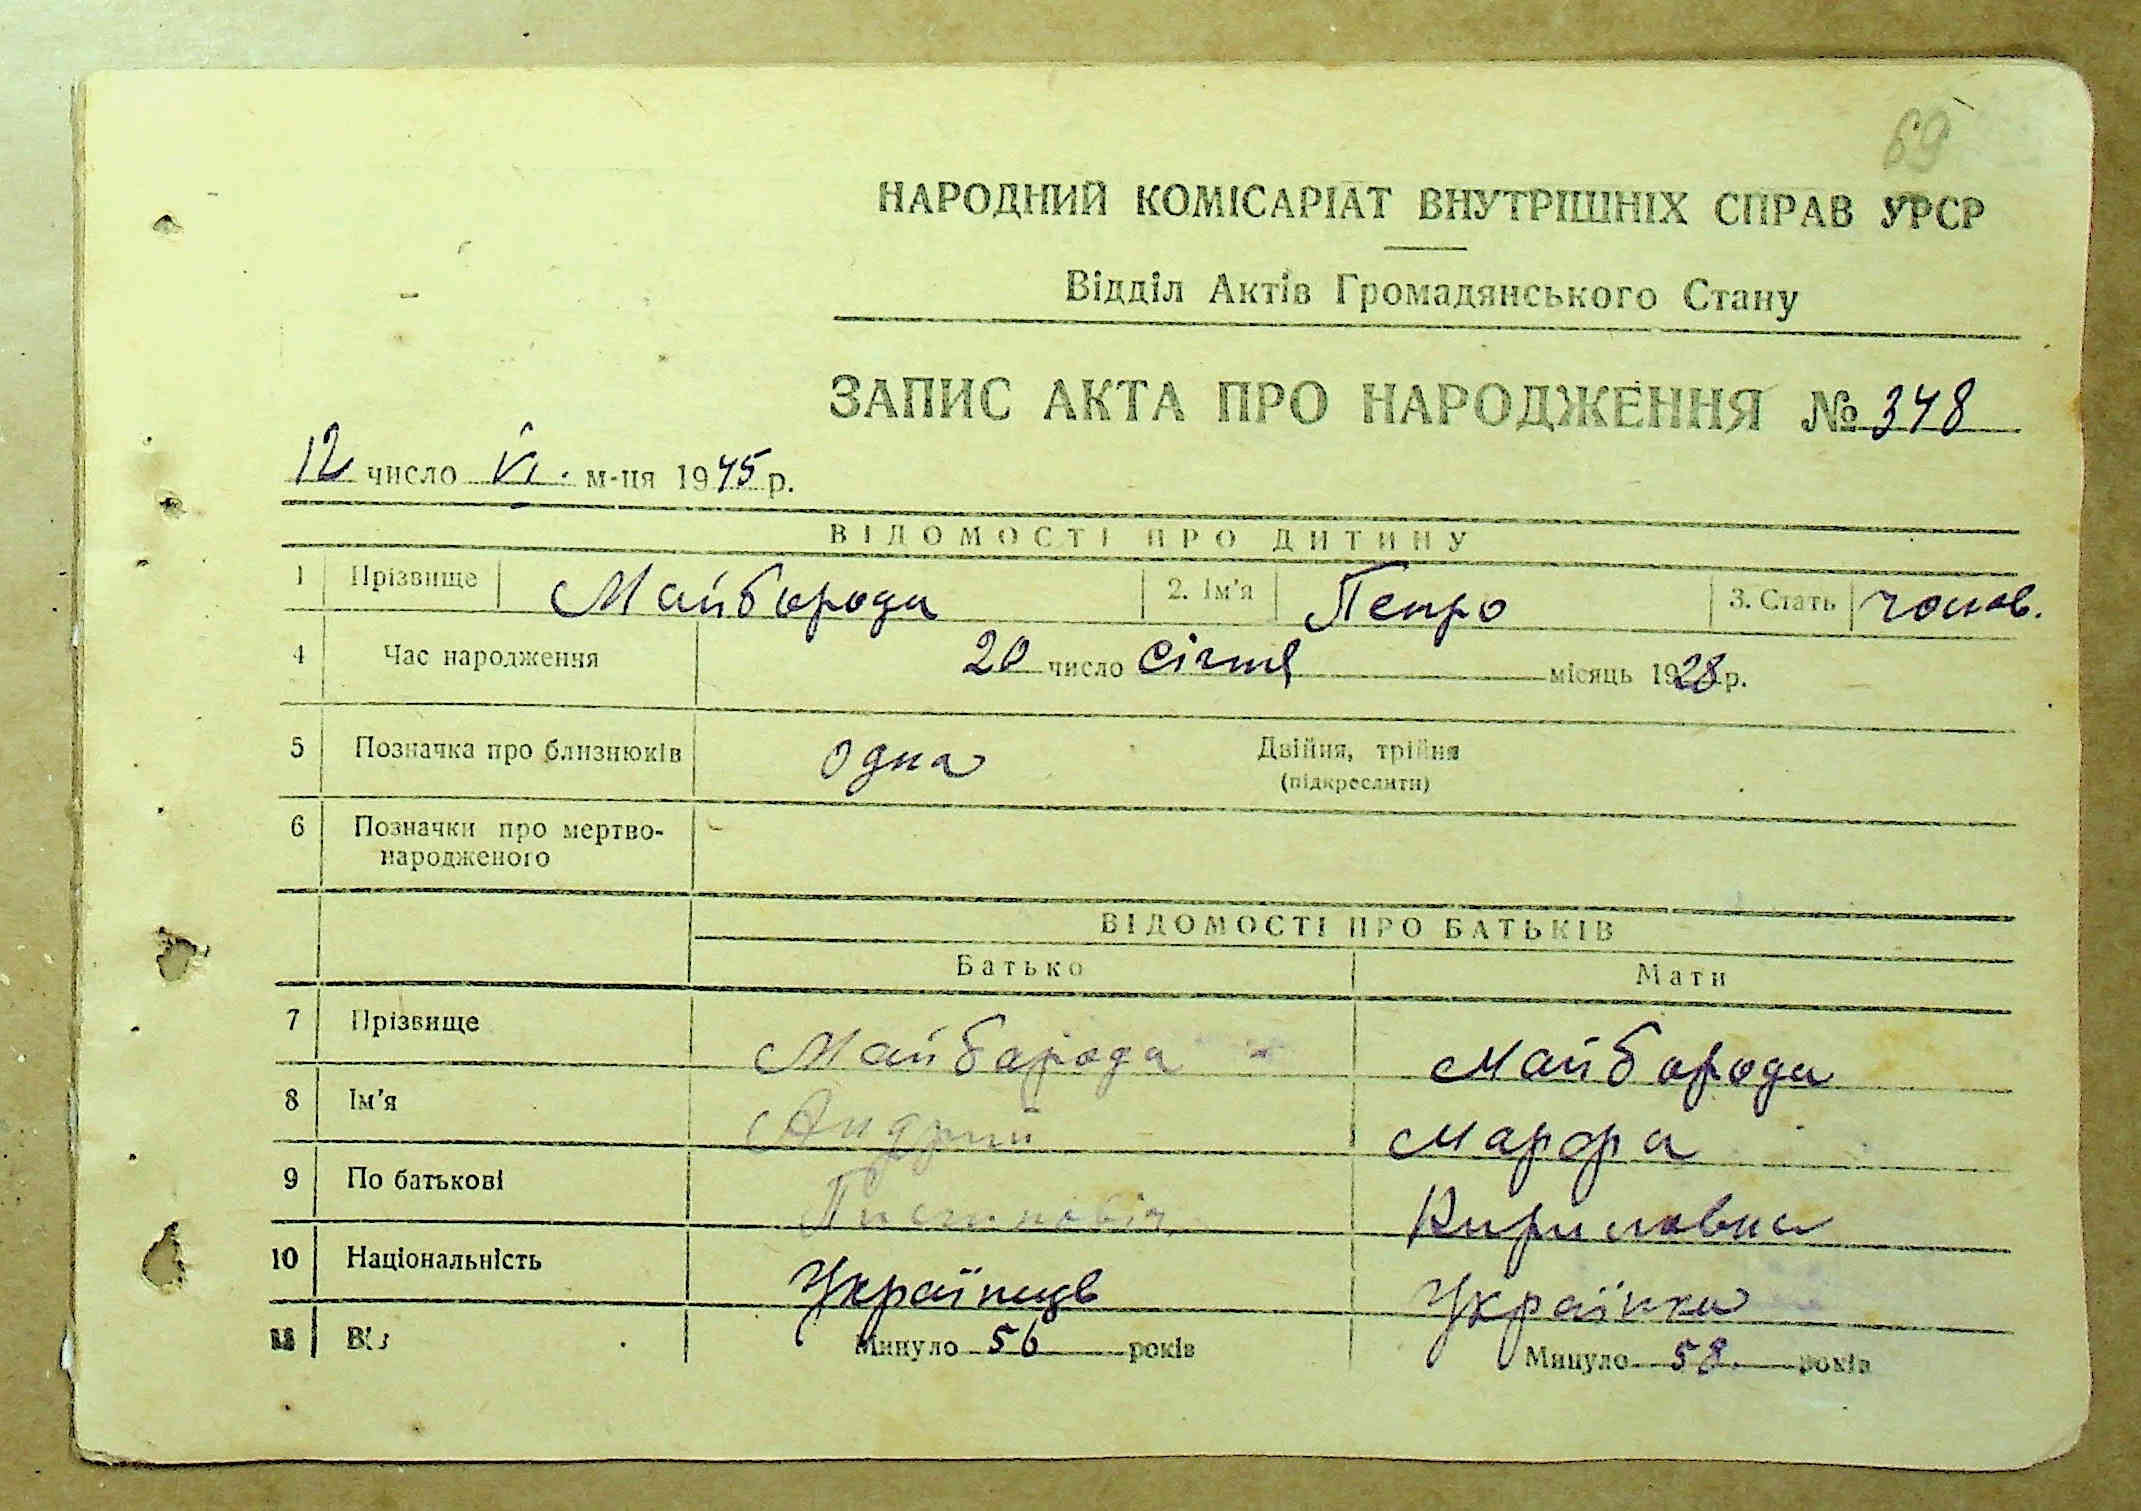 69
НАРОДНИЙ КОМІСАРІАТ ВНУТРІШНІХ СПРАВ УРСР
Відділ Актів Громадянського Стану
ЗАПИС АКТА ПРО НАРОДЖЕННЯ № 348
12 число VI. м-ця 1945 р.
ВІДОМОСТІ ПРО ДИТИНУ
1 Прізвище Майборода 2. Ім'я Петро 3. Стать чолов.
4 Час народження 20 число січня місяць 1928 р.
5 Позначка про близнюків одна Двійня, трійня
(підкреслити)
6 Позначки про мертво-
народженого
ВІДОМОСТІ ПРО БАТЬКІВ
Батько Мати
7 Прізвище Майборода Майборода
8 Ім'я Андрій Марфа
9 По батькові Кириловна
10 Національність Українець Українка
11 Вік Минуло 56 років Минуло 58. років